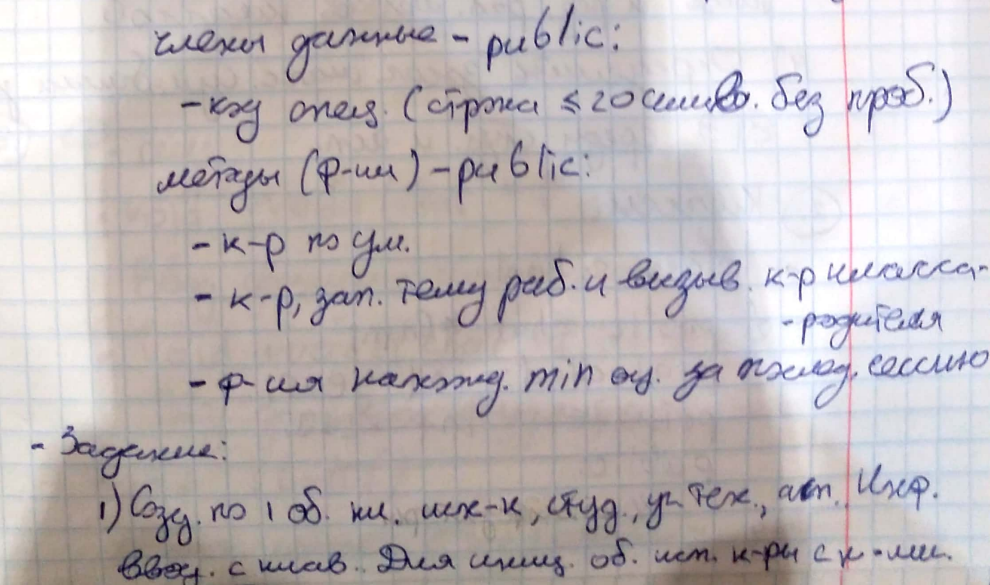 члены данные - public:
- код спец. (строка ≤ 20 символ. без проб.)
методы (ф-ии) - public:
- к-р по ум.
- к-р, зап. тему раб. и вызыв. к-р класса-
- родителя
- ф-ия нахожд. min оц. за послед. сессию
- Задание:
1) Созд. по 1 об. кл. шк-к, студ., уч. тех., асп. Инф.
ввод. с клав. Для иниц. об. исп. к-ры с п-ми.